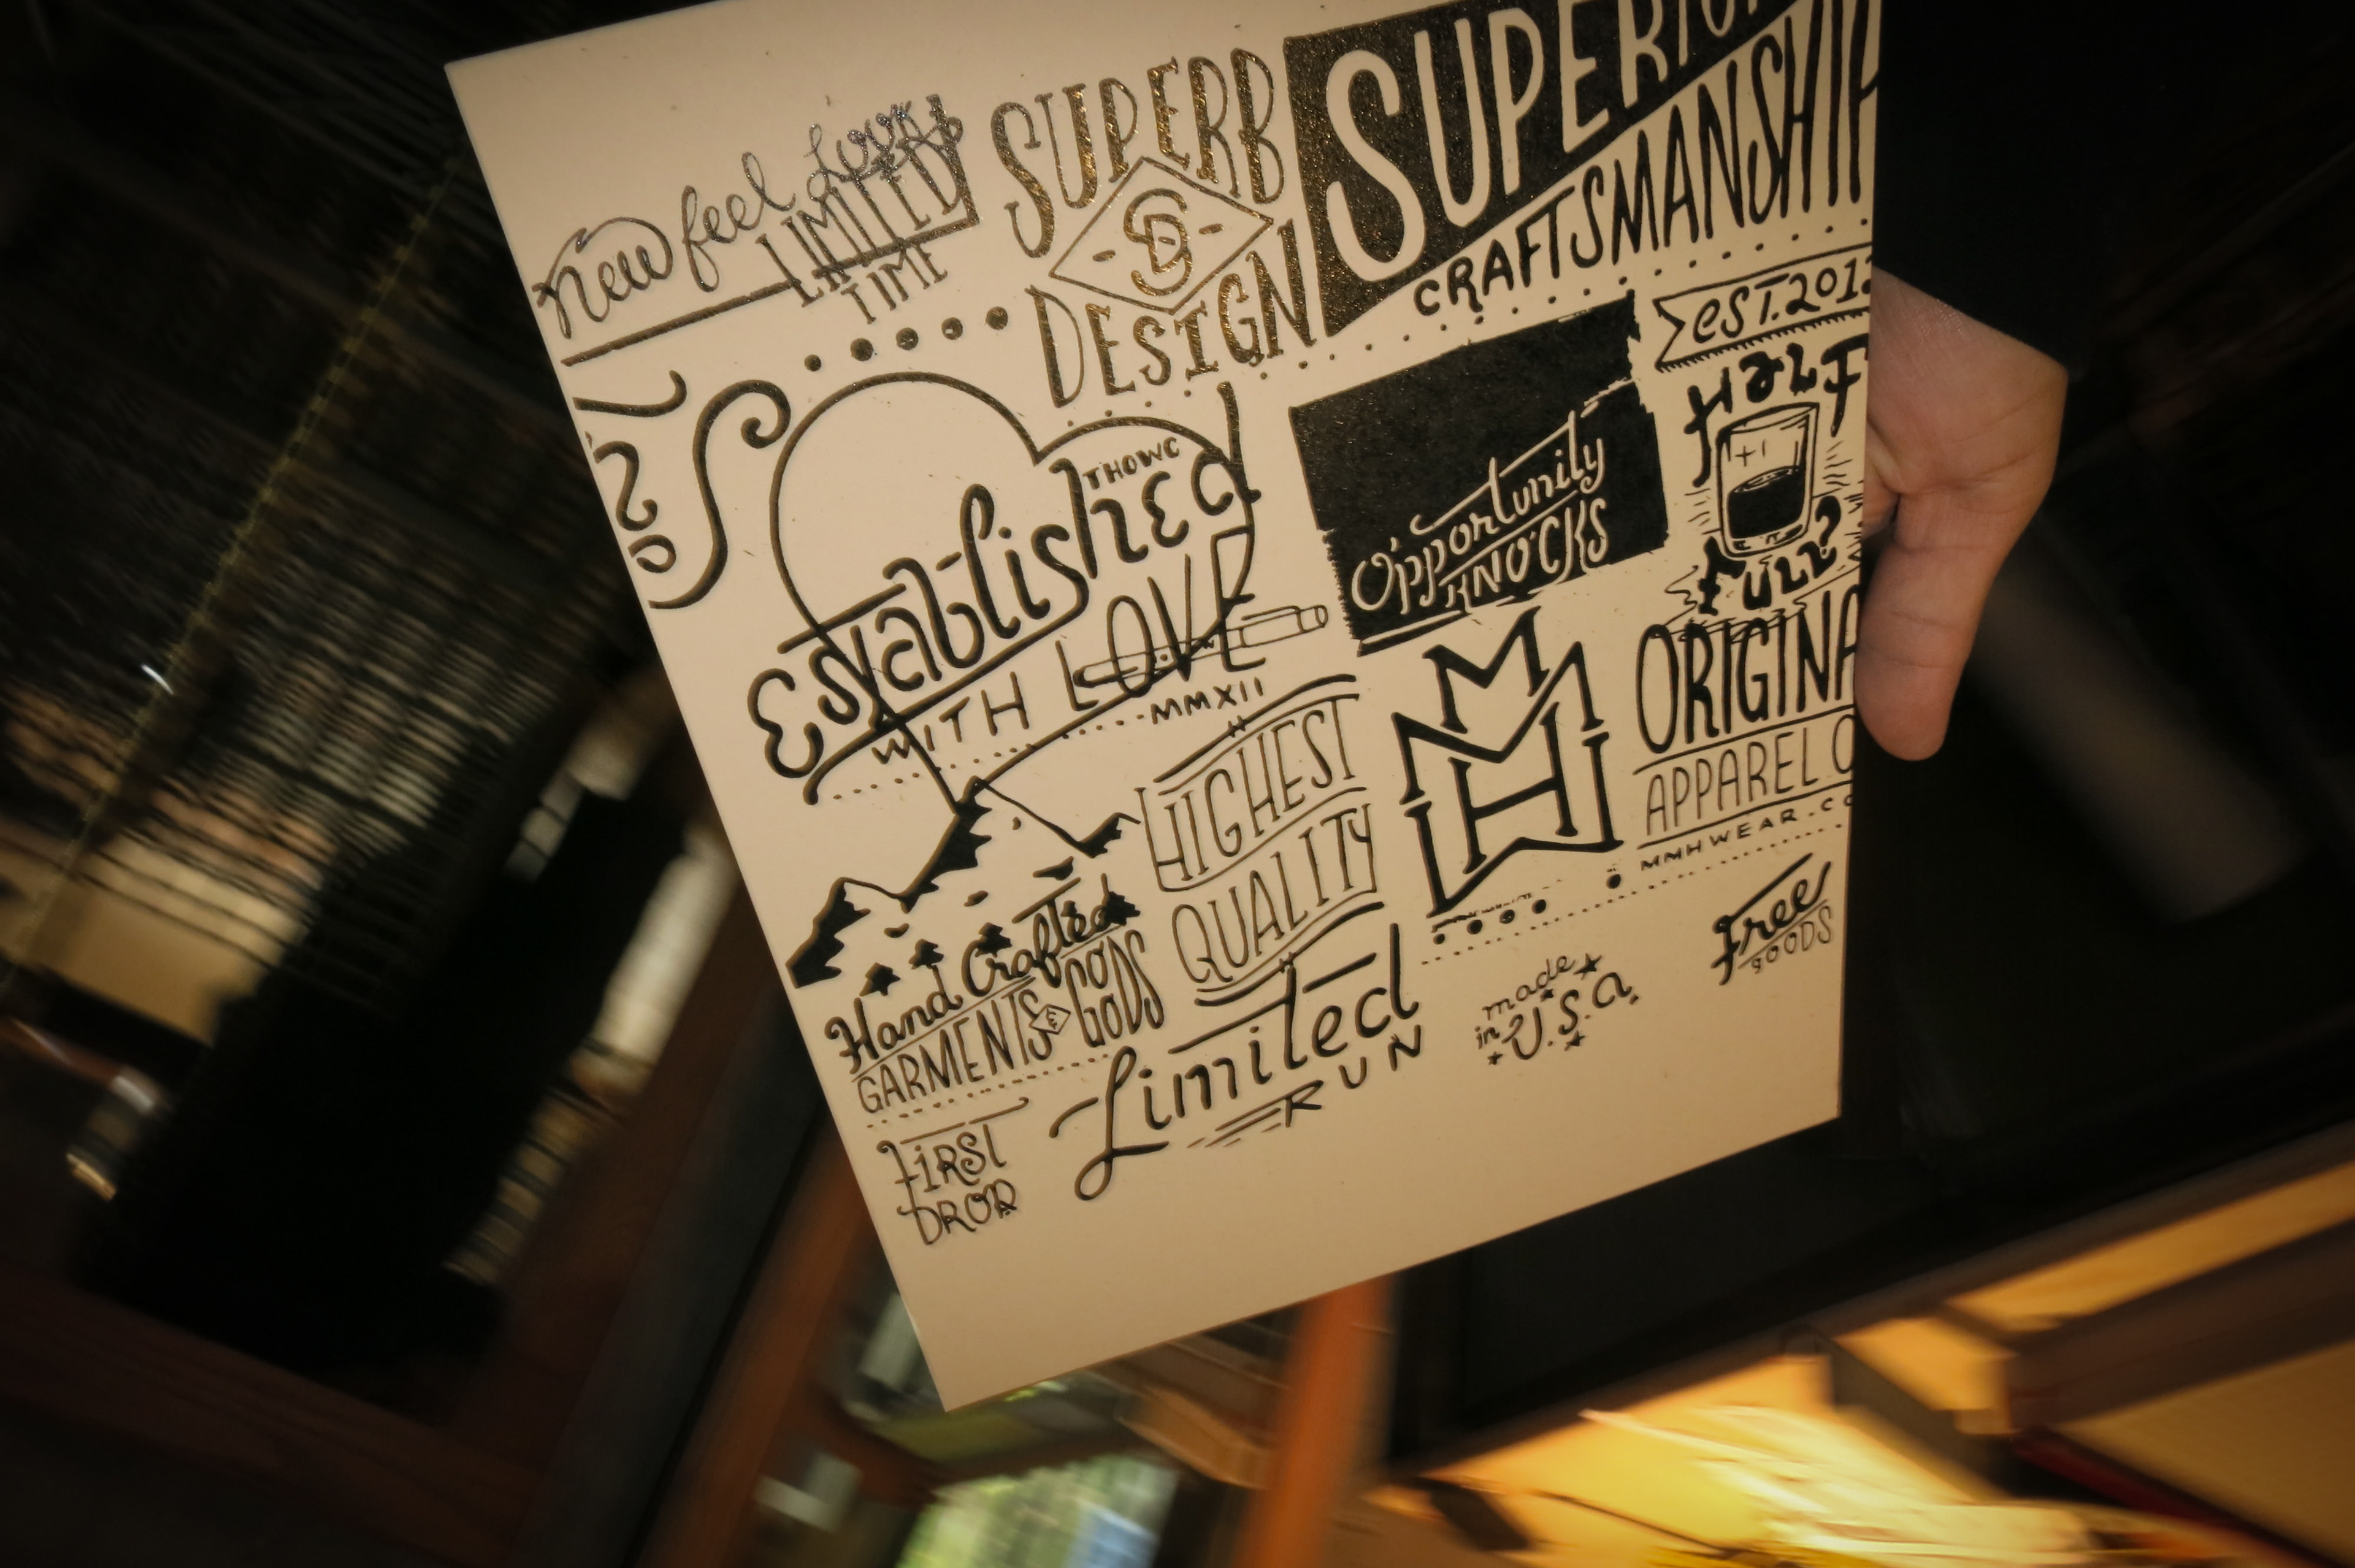 New feel
LIMITED
TIME
SUPERB
SD
DESIGN
SUPERIO
CRAFTSMANSHIP
EST. 201
HALF
FULL?
THOWC
Established
WITH LOVE
MMXII
Opportunity
KNOCKS
HIGHEST
QUALITY
MMH
ORIGINA
APPAREL
MMHWEAR.CO
Hand Crafted
GARMENTS & GOODS
FIRST
DROP
Limited
RUN
made
in U.S.a.
Free
GOODS